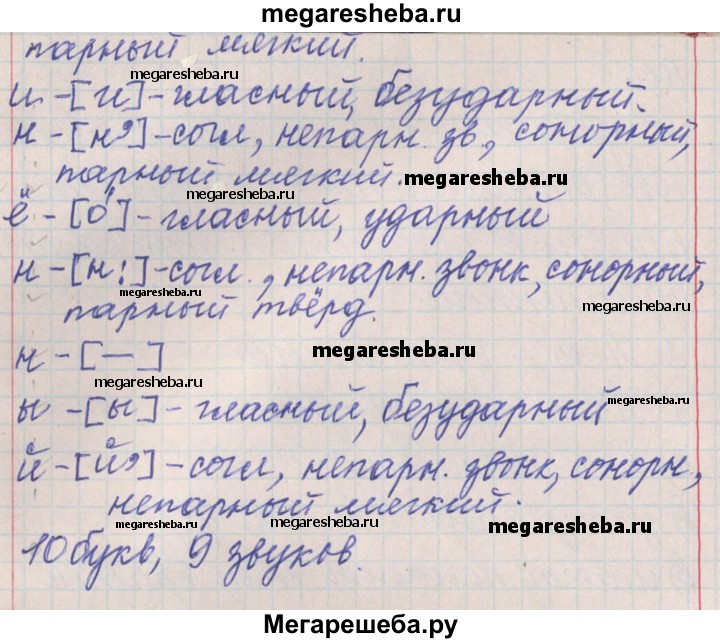 megaresheba.ru
парный мягкий.
megaresheba.ru
и - [и] - гласный, безударный.
н - [н'] - согл, непарн. зв, сонорный,
парный мягкий.
megaresheba.ru
ё - [о́] - гласный, ударный
н - [н:] - согл., непарн. звонк, сонорный,
megaresheba.ru
megaresheba.ru
парный твёрд.
н - [—]
megaresheba.ru
megaresheba.ru
ы - [ы] - гласный, безударный
megaresheba.ru
й - [й'] - согл, непарн. звонк, сонорн.,
непарный мягкий.
megaresheba.ru
megaresheba.ru
10 букв, 9 звуков.
Мегарешеба.ру